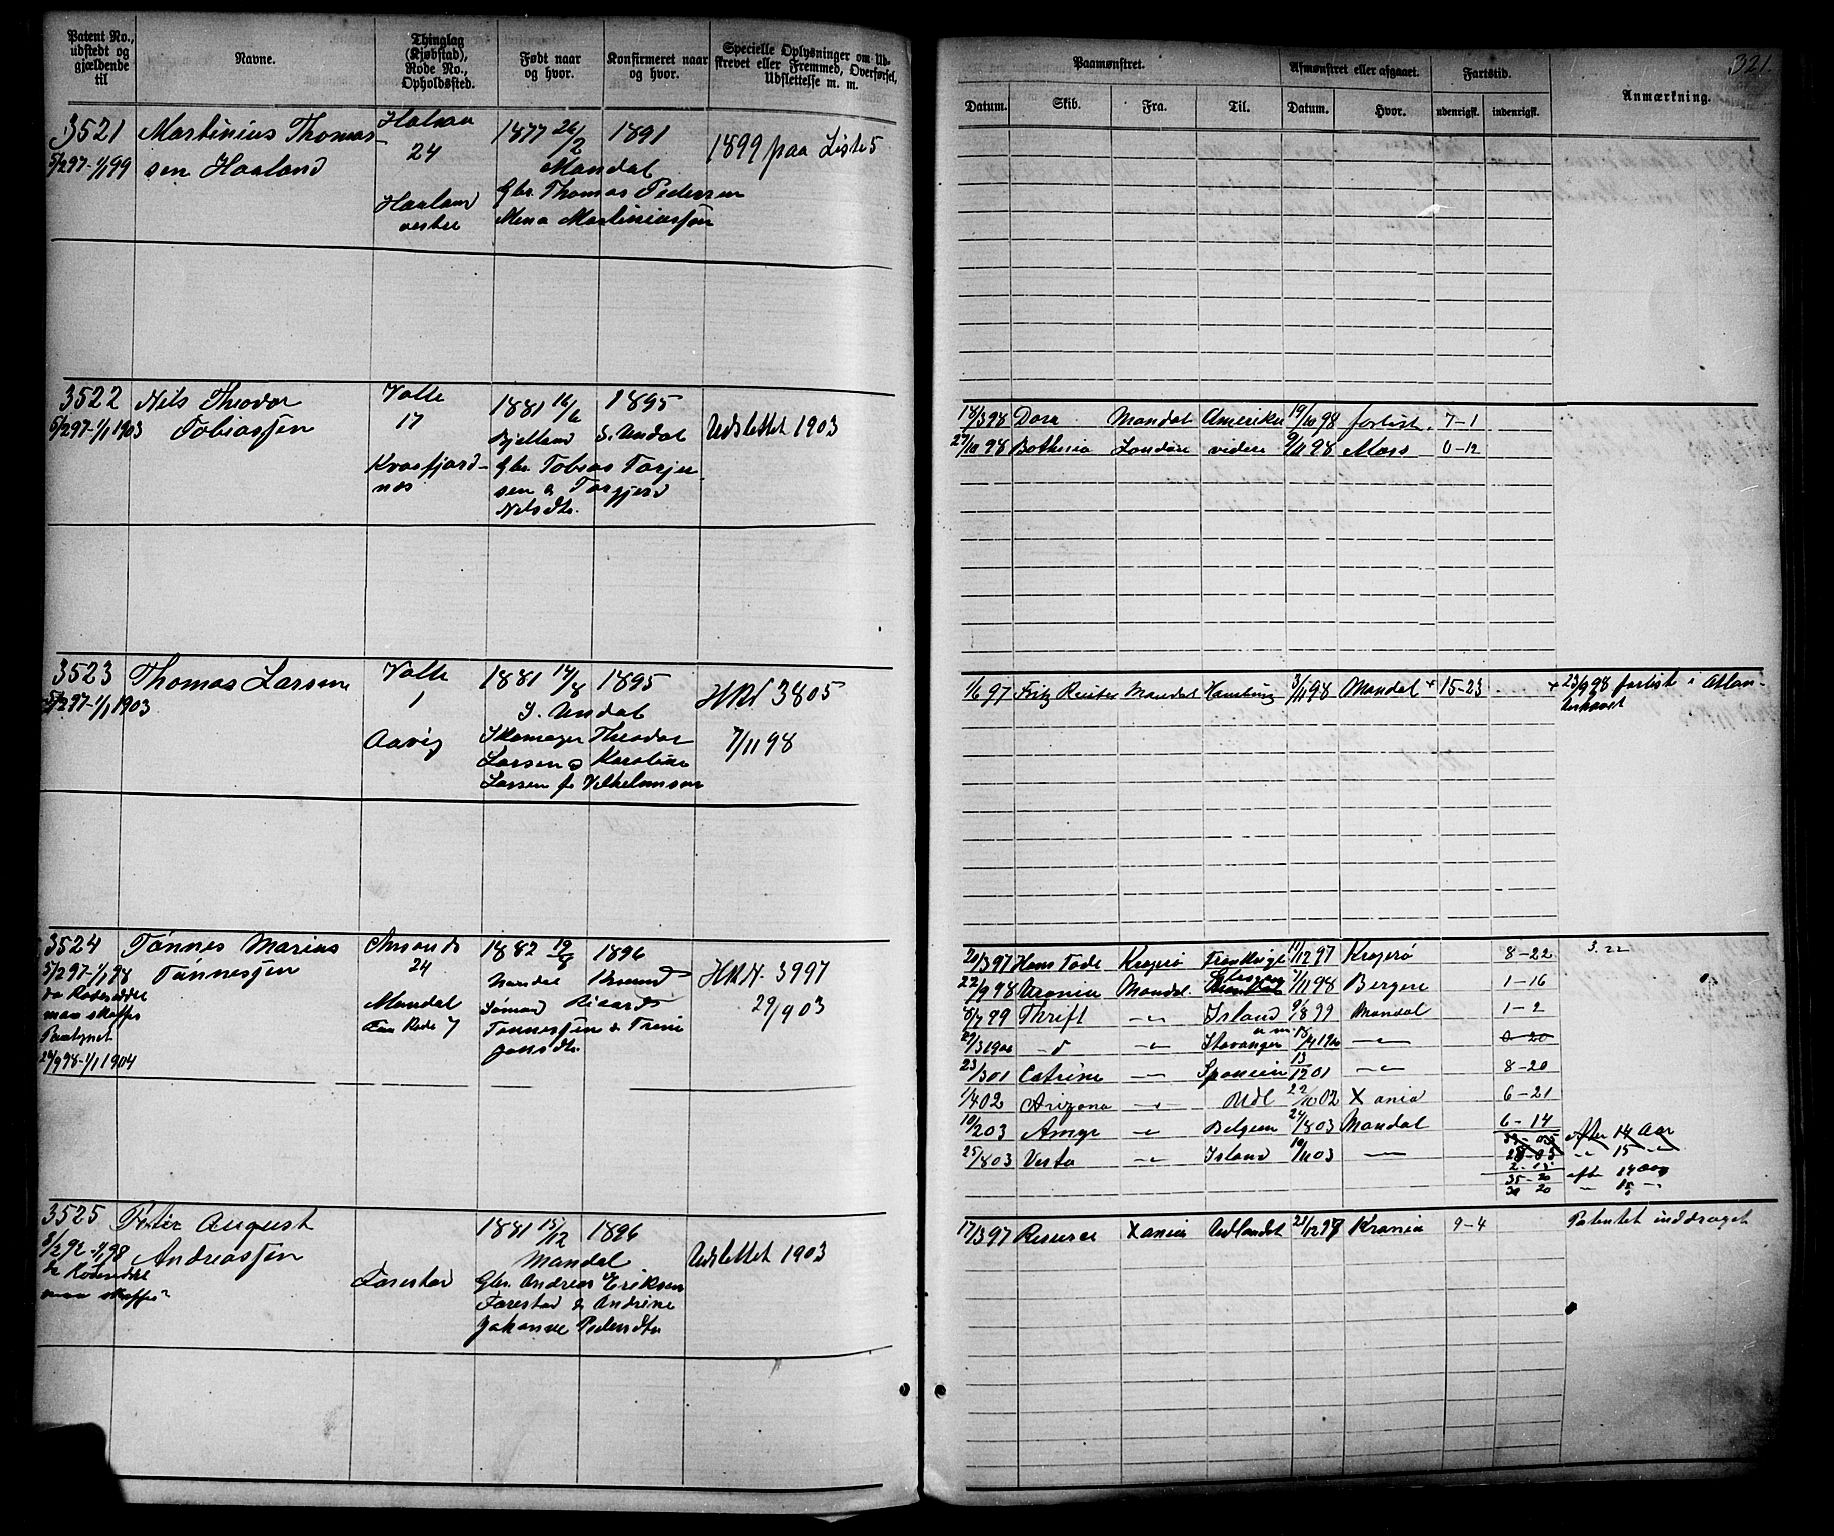 Patent No., udstedt og gjældende til
Navne.
Thinglag (Kjøbstad), Rode No., Opholdssted.
Født naar og hvor.
Konfirmeret naar og hvor.
Specielle Oplysninger om Udskrevet eller Fremmed, Overførsel, Udslettelse m. m.
Paamønstret.
Afmønstret eller afgaaet.
Fartstid.
Anmærkning.
321.
Datum.
Skib.
Fra.
Til.
Datum.
Hvor.
udenrigsk.
indenrigsk.
3521 Martinius Thomas-
5/2 97-1/1 99 sen Haaland
24
Haaland
vestre
1877 26/2 1891
Mandal
Gbr. Thomas Pedersen
Mena Martiniusson
1899 paa Liste 5
3522 Nils Theodor
5/2 97-1/1 1903 Tobiassen
Valle
17
Kvaafjord-
nes
1881 16/6 1895
Bjelland S. Undal
Gbr. Tobias Torjer
sen & Torgjerd
Nilsdtr.
Udslettet 1903
18/3 98 Dora Mandal Amerika 19/10 98 forlist. 7-1
27/10 98 Bothnia London videre 9/11 98 Moss 0-12
3523 Thomas Larsen
5/2 97-1/1 1903
Valle
1
Aavig
1881 14/8 1895
S. Undal
Skomager Theodor
Larsen & Karoline
Larsen f.
HRN 3805
7/11 98
1/6 97 Fritz Reuter Mandal Hamburg 3/11 98 Mandal + 15-23 + 23/9 98 forlist i Atlan-
terhavet
3524 Tønnes Marius
5/2 97-1/1 98 Tønnessen
da Rodeoldermand skaffes
29/9 98-1/1 1904
24
Mandal
Rode 7
1882 19/8 1896
Mandal
Sømand Rikard
Tønnessen & Trine
Jonsdtr.
HRN. 3997
29/9 03
20/3 97 Hans Tode Kragerø Frankrige 11/12 97 Kragerø 8-22 3.22
22/9 98 Urania Mandal Glasgow 7/11 98 Bergen 1-16
8/7 99 Thrift -"- Island 9/8 99 Mandal 1-2
29/3 1900 -d -"- Stavanger 18/4 1900 -"- 0-20
23/3 01 Catrine -"- Spanien 13/12 01 -"- 8-20
1/4 02 Arizona -"- Udl 22/10 02 Xania 6-21
10/2 03 Amor -"- Belgien 24/8 03 Mandal 6-14
25/8 03 Vesta -"- Island 10/11 03 -"- 2-15
Efter 14 Aar
-"- 15 -"-
35-20 efter 14 Aar
30 20 -"- 15 -"-
3525 Peter August
Andreassen
Farestad
1881 15/12 1896
Mandal
Gbr. Andreas Eriksen
Farestad & Andrine
Johanne Pedersdtr
Udslettet 1903
17/3 97 Resurce Xania Udlandet 21/12 97 Krania 9-4 Patentet inddraget